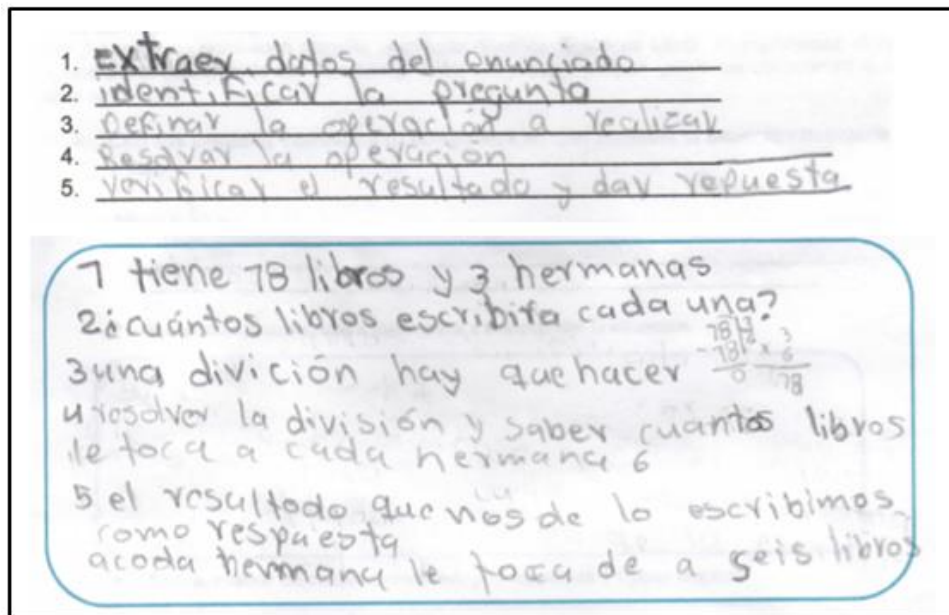 1. Extraer datos del enunciado
2. identificar la pregunta
3. Definar la operación a realizar
4. Resolvar la operación
5. verificar el resultado y dar repuesta
1 tiene 18 libros y 3 hermanas
2 ¿cuántos libros escribira cada una?
3 una divición hay que hacer
4 resolver la división y saber cuantos libros
le toca a cada hermana 6
5 el resultado que nos de lo escribimos
como respuesta
acada hermana le toca de a seis libros